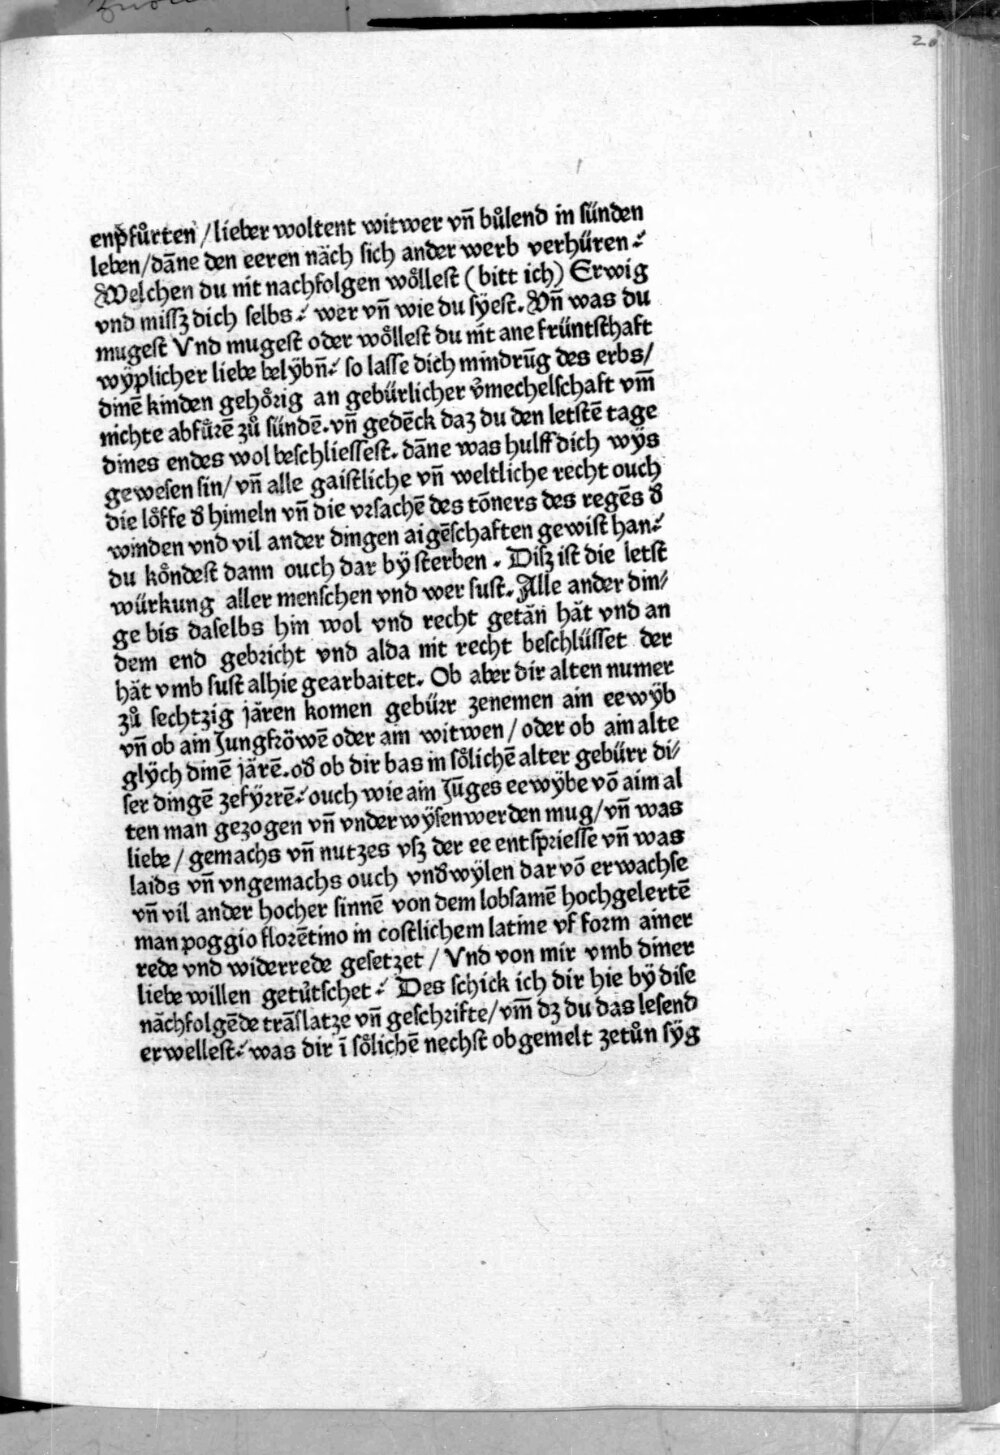 20
enpfůrten / lieber woltent witwer vn̄ bůlend in sünden
leben / dān̄e den eeren nǎch sich ander werb verhüren⸗
Welchen du nit nachfolgen wo̊llest (bitt ich) Erwig
vnd missz dich selbs⸗ wer vn̄ wie du sÿest. Vn̄ was du
mugest Vnd mugest oder wo̊llest du nit̄ ane früntschaft
wÿplicher liebe belÿbn̄⸗ so lasse dich mindrūg des erbs/
dinē kinden geho̊rig an gebürlicher v̊mechelschaft vm̄
nichte abfůrē zů sündē. vn̄ gedēck daz du den letstē tage
dines endes wol beschliessest. dāne was hulff dich wÿs
gewesen sin/ vn̄ alle gaistliche vn̄ weltliche recht ouch
die lo̊ffe d̕ himeln vn̄ die vrsachē des tōners des regēs d̕
winden vnd vil ander dingen aigēschaften gewist han⸗
du ko̊ndest dann ouch dar bÿ sterben. Disz ist die letst
würkung aller menschen vnd wer sust. Alle ander din⸗
ge bis daselbs hin wol vnd recht getǎn hǎt vnd an
dem end gebricht vnd alda nit recht beschlüsset der
hǎt vmb sust alhie gearbaitet. Ob aber dir alten numer
zů sechtzig jǎren komen gebürr zenemen ain eewÿb
vn̄ ob ain Jungfröwē oder ain witwen / oder ob ain alte
glÿch dinē jǎrē. od̕ ob dir bas in so̊lichē alter gebürr di⸗
ser dingē zefÿrrē⸗ ouch wie ain Jūges eewÿbe vō aim al
ten man gezogen vn̄ vnderwÿsen werden mug/ vn̄ was
liebe / gemachs vn̄ nutzes vsz der ee entspriesse vn̄ was
laids vn̄ vngemachs ouch vnd̕wÿlen dar vō erwachse
vn̄ vil ander hocher sinnē von dem lobsamē hochgelertē
man poggio florētino in costlichem latine vf form ainer
rede vnd widerrede gesetzet / Vnd von mir vmb diner
liebe willen getůtschet⸗ Des schick ich dir hie bÿ dise
nǎchfolgēde trāslatze vn̄ geschrifte/ vm̄ dz du das lesend
erwellest⸗ was dir ī so̊lichē nechst obgemelt zetůn sÿg